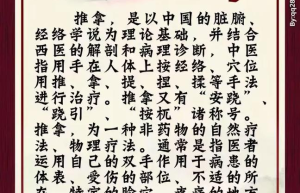 推拿，是以中国的脏腑、
经络学说为理论基础，并结合
西医的解剖和病理诊断，中医
指用手在人体上按经络、穴位
用推、拿、提、捏、揉等手法
进行治疗。推拿又有“安跷”、
“跷引”、“按杌”诸称号。
推拿，为一种非药物的自然疗
法、物理疗法。通常是指医者
运用自己的双手作用于病患的
体表、受伤的部位、不适的所